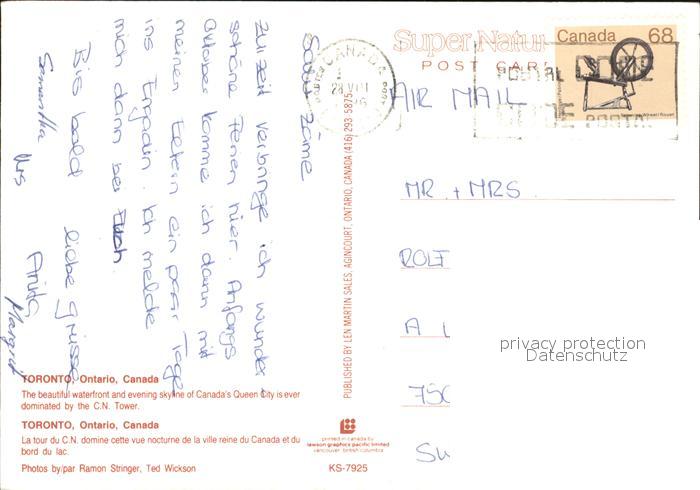 Super Natu
POST CAR
Canada 68
CANADA
28 VIII
POSTAL CODE
CODE POSTAL
AIR MAIL
MR. + MRS.
ROLF
A
750
privacy protection
Datenschutz
Salü zäme
Zur Zeit verbringe ich wunder-
schöne Ferien hier. Anfangs
Oktober komme ich dann mit
meinen Eltern ein paar Tage
ins Engadin. Ich melde
mich dann bei Euch.
Bis bald liebe Grüsse
Samantha Urs Anita
Margrit
PUBLISHED BY LEN MARTIN SALES, AGINCOURT, ONTARIO, CANADA (416) 293-5875
TORONTO, Ontario, Canada
The beautiful waterfront and evening skyline of Canada's Queen City is ever
dominated by the C.N. Tower.
TORONTO, Ontario, Canada
La tour du C.N. domine cette vue nocturne de la ville reine du Canada et du
bord du lac.
Photos by/par Ramon Stringer, Ted Wickson
printed in canada by
lawson graphics pacific limited
vancouver british columbia
KS-7925